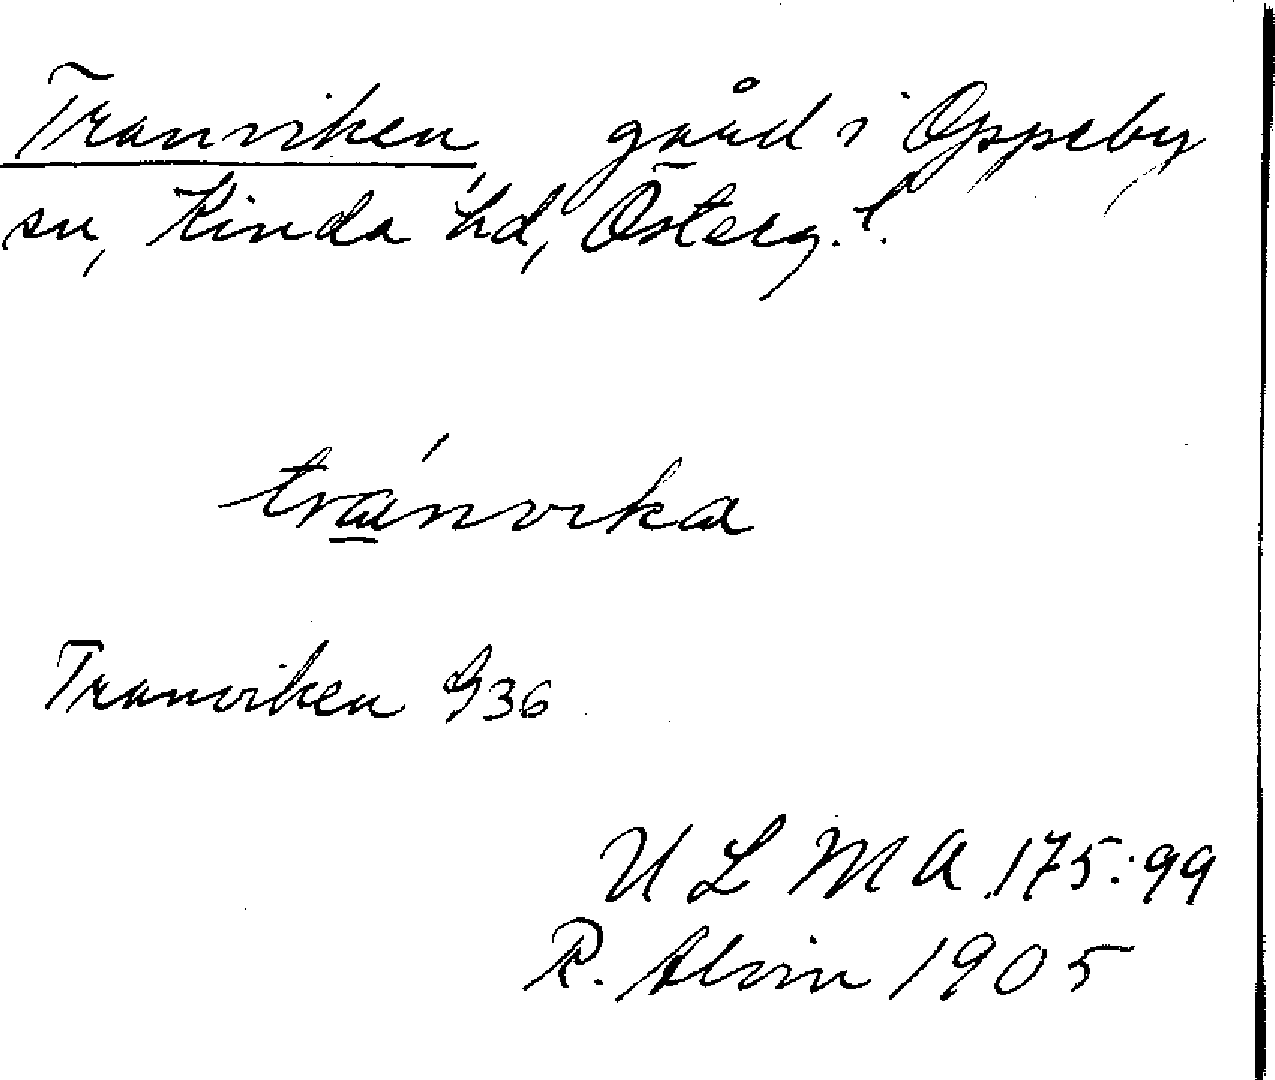 Tranviken, gård i Oppeby
sn, Kinda hd, Österg. l.
tránvika
Tranviken G 36
U L M A 175:99
R. Alvin 1905